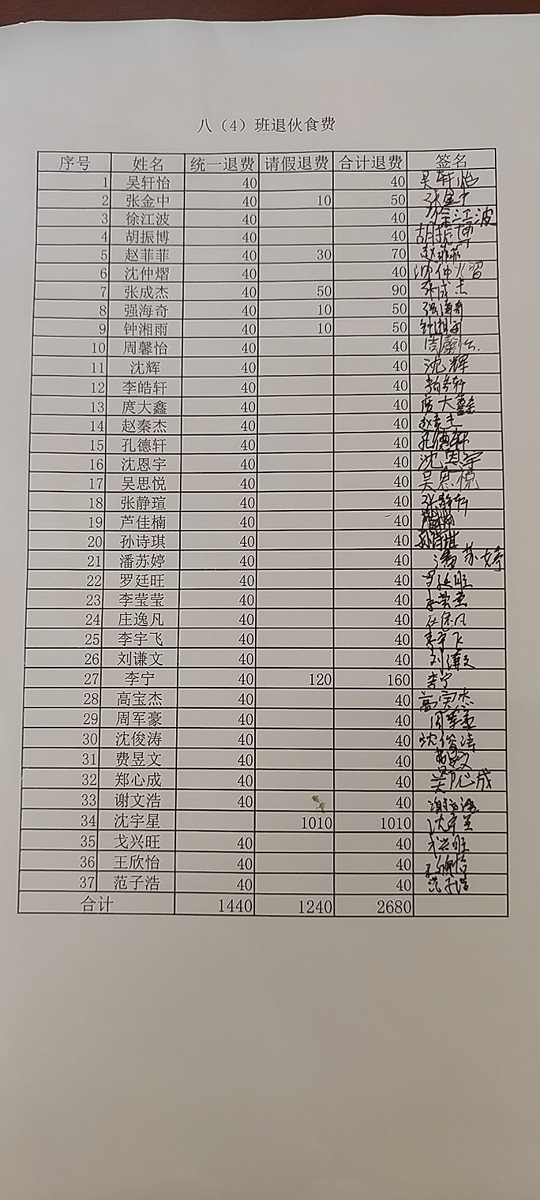 八（4）班退伙食费
序号 姓名 统一退费 请假退费 合计退费 签名
1 吴轩怡 40 40 吴轩怡
2 张金中 40 10 50 张金中
3 徐江波 40 40 徐江波
4 胡振博 40 40 胡振博
5 赵菲菲 40 30 70 赵菲菲
6 沈仲熠 40 40 沈仲熠
7 张成杰 40 50 90 张成杰
8 强海奇 40 10 50 强海奇
9 钟湘雨 40 10 50 钟湘雨
10 周馨怡 40 40 周馨怡
11 沈辉 40 40 沈辉
12 李皓轩 40 40
13 庹大鑫 40 40 庹大鑫
14 赵秦杰 40 40
15 孔德轩 40 40 孔德轩
16 沈恩宇 40 40 沈恩宇
17 吴思悦 40 40 吴思悦
18 张静瑄 40 40
19 芦佳楠 40 40
20 孙诗琪 40 40 孙诗琪
21 潘苏婷 40 40 潘苏婷
22 罗廷旺 40 40
23 李莹莹 40 40
24 庄逸凡 40 40
25 李宇飞 40 40 李宇飞
26 刘谦文 40 40 刘谦文
27 李宁 40 120 160 李宁
28 高宝杰 40 40 高宝杰
29 周军豪 40 40 周军豪
30 沈俊涛 40 40 沈俊涛
31 费昱文 40 40
32 郑心成 40 40 郑心成
33 谢文浩 40 40 谢文浩
34 沈宇星 1010 1010 沈宇星
35 戈兴旺 40 40 戈兴旺
36 王欣怡 40 40
37 范子浩 40 40 范子浩
合计 1440 1240 2680